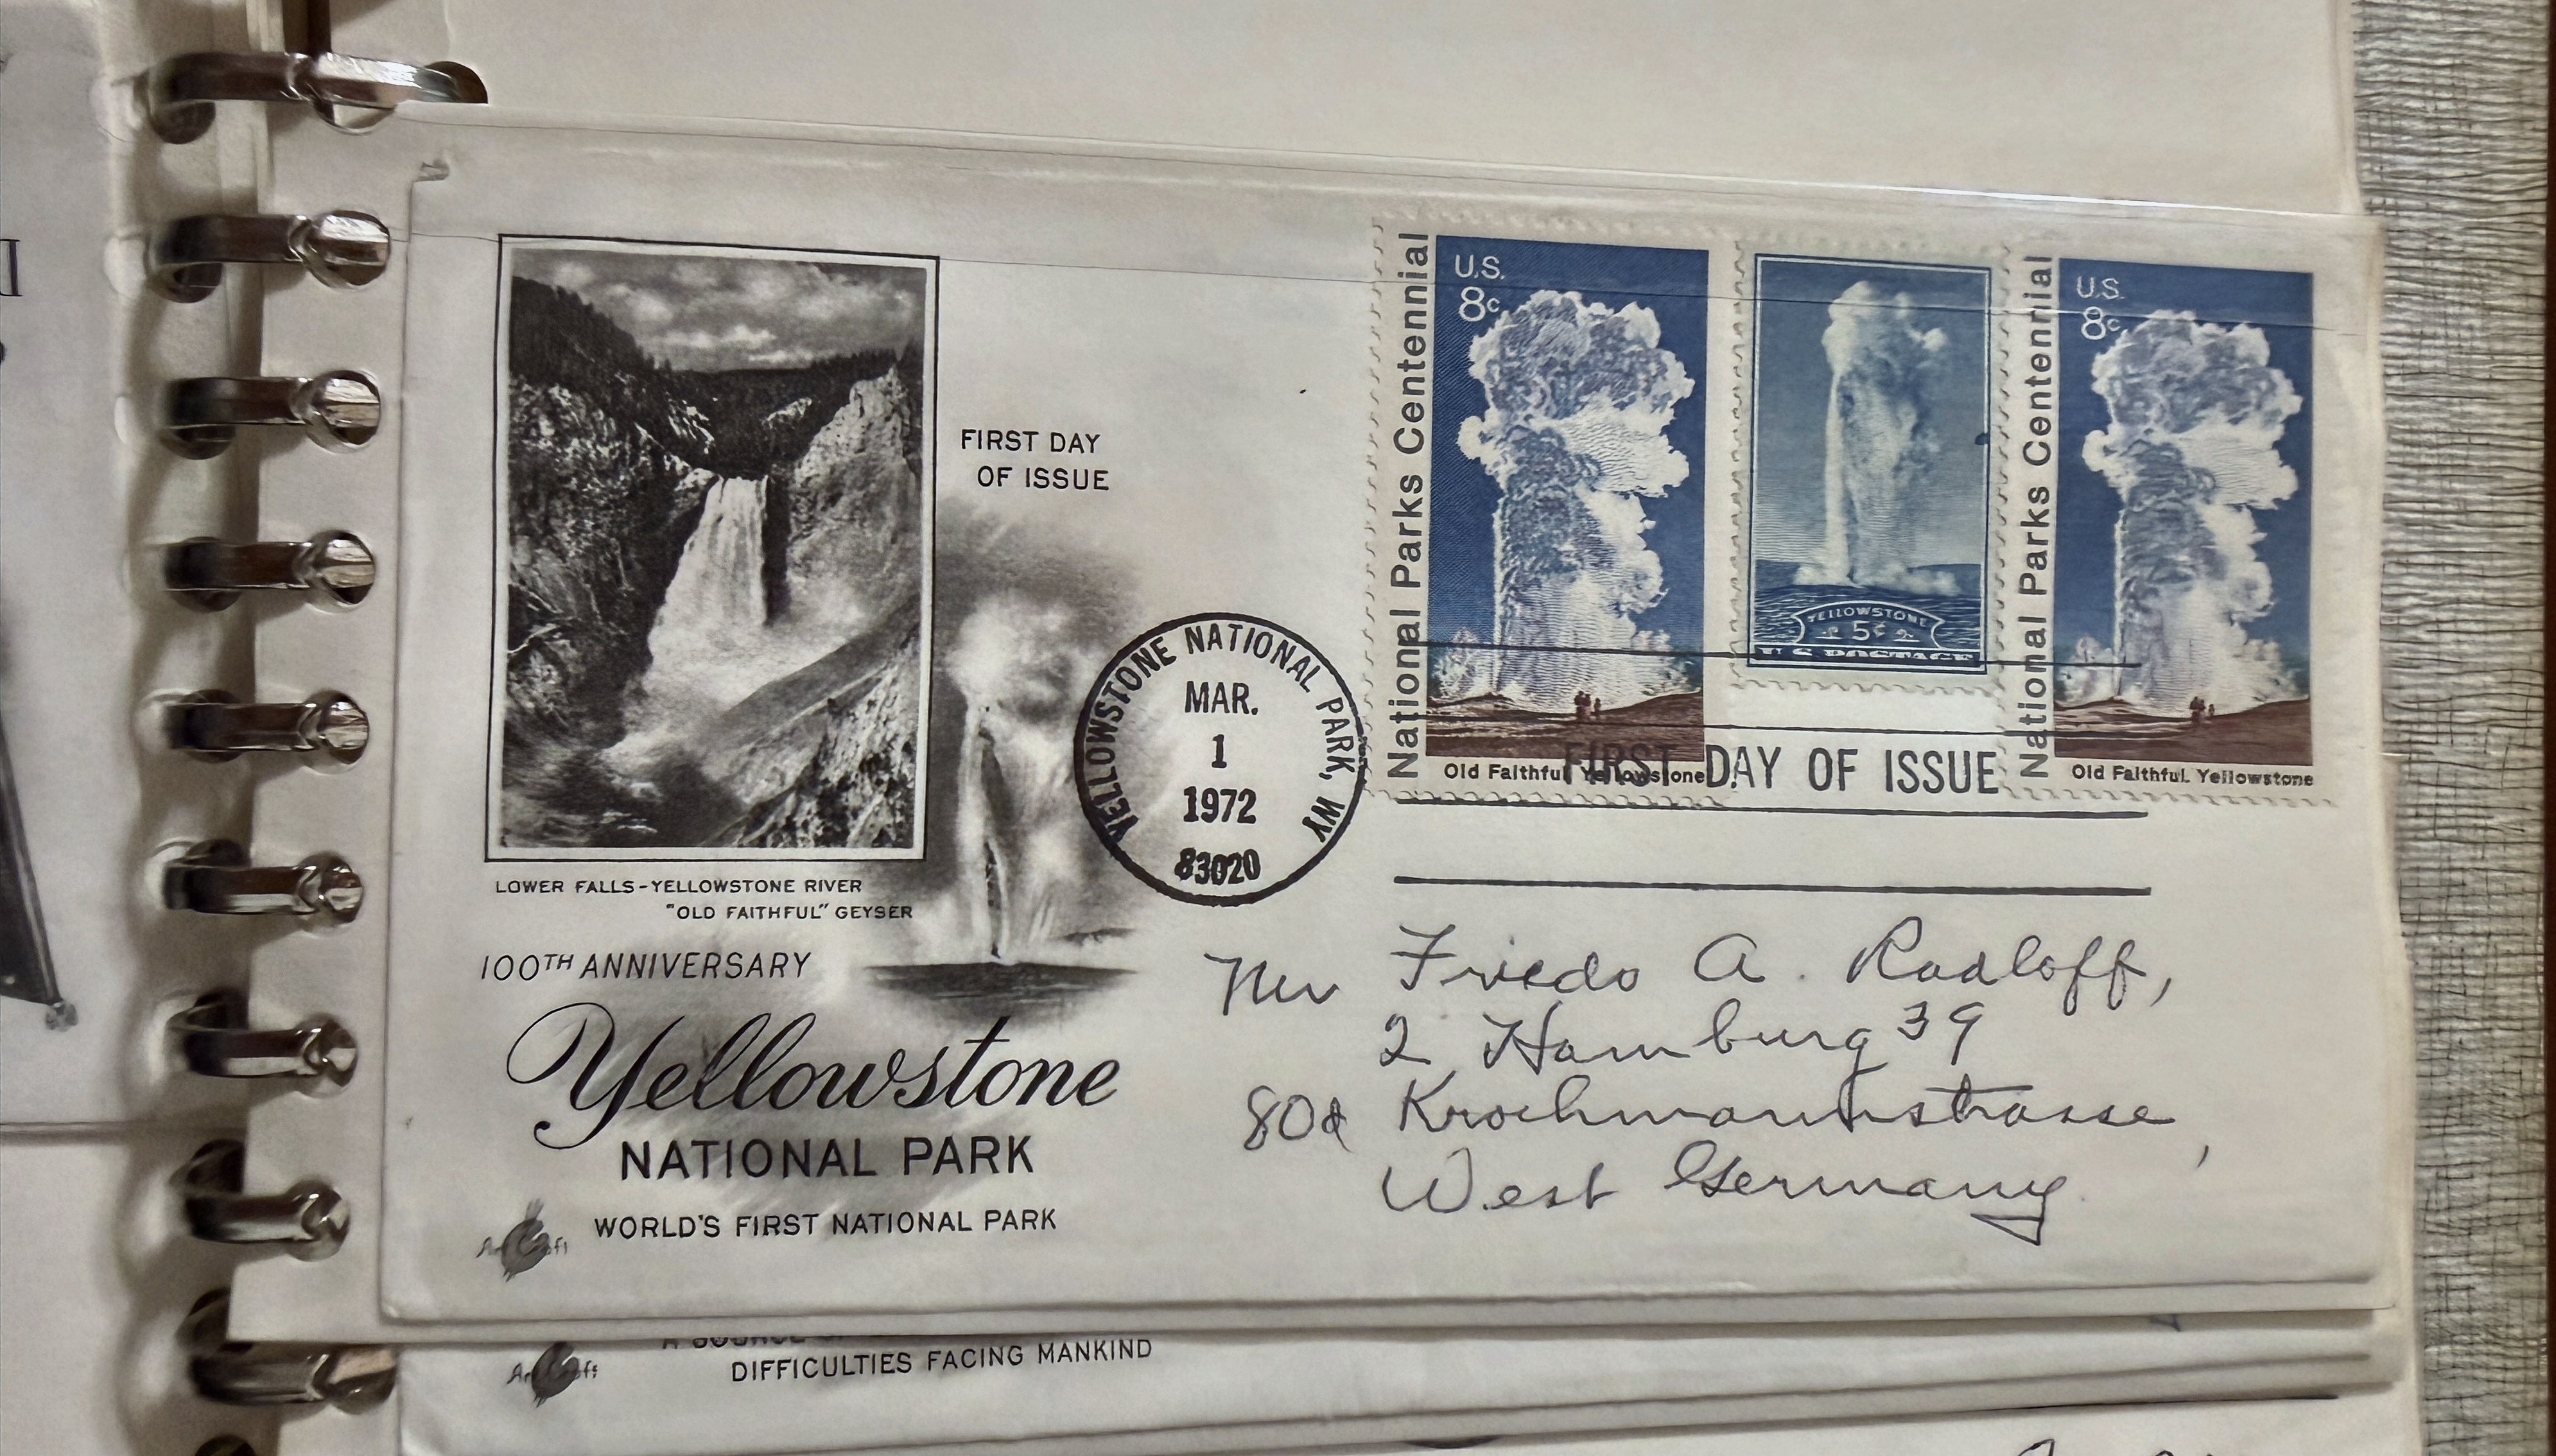 FIRST DAY
OF ISSUE
LOWER FALLS-YELLOWSTONE RIVER
"OLD FAITHFUL" GEYSER
100TH ANNIVERSARY
Yellowstone
NATIONAL PARK
WORLD'S FIRST NATIONAL PARK
ArtCraft
YELLOWSTONE NATIONAL PARK, WY
MAR.
1
1972
83020
National Parks Centennial
U.S.
8c
Old Faithful, Yellowstone
YELLOWSTONE
5¢
U.S. POSTAGE
National Parks Centennial
U.S.
8c
Old Faithful, Yellowstone
FIRST DAY OF ISSUE
Mr Friedo A. Radloff,
2 Hamburg 39
80a Krochmannstrasse,
West Germany
ArtCraft
DIFFICULTIES FACING MANKIND